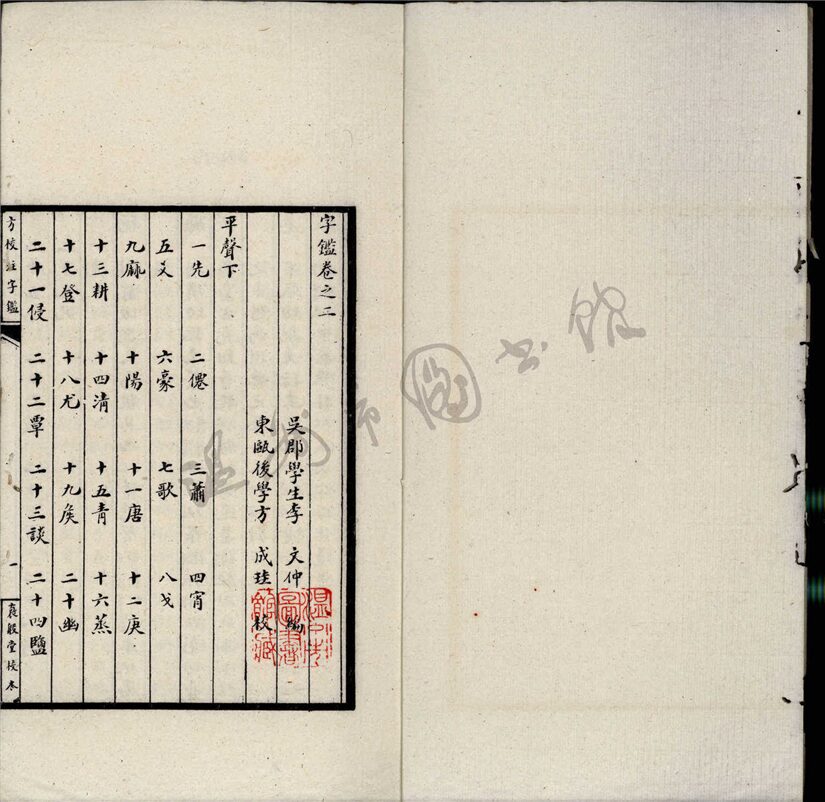 字鑑卷之二
吳郡學生李 文仲 編
東甌後學方 成珪 校
平聲下
一先 二僊 三蕭 四宵
五爻 六豪 七歌 八戈
九麻 十陽 十一唐 十二庚
十三耕 十四清 十五青 十六蒸
十七登 十八尤 十九矦 二十幽
二十一侵 二十二覃 二十三談 二十四鹽
方校注字鑑
一
袌殷堂校本
溫州市圖書館
溫州市圖書館藏